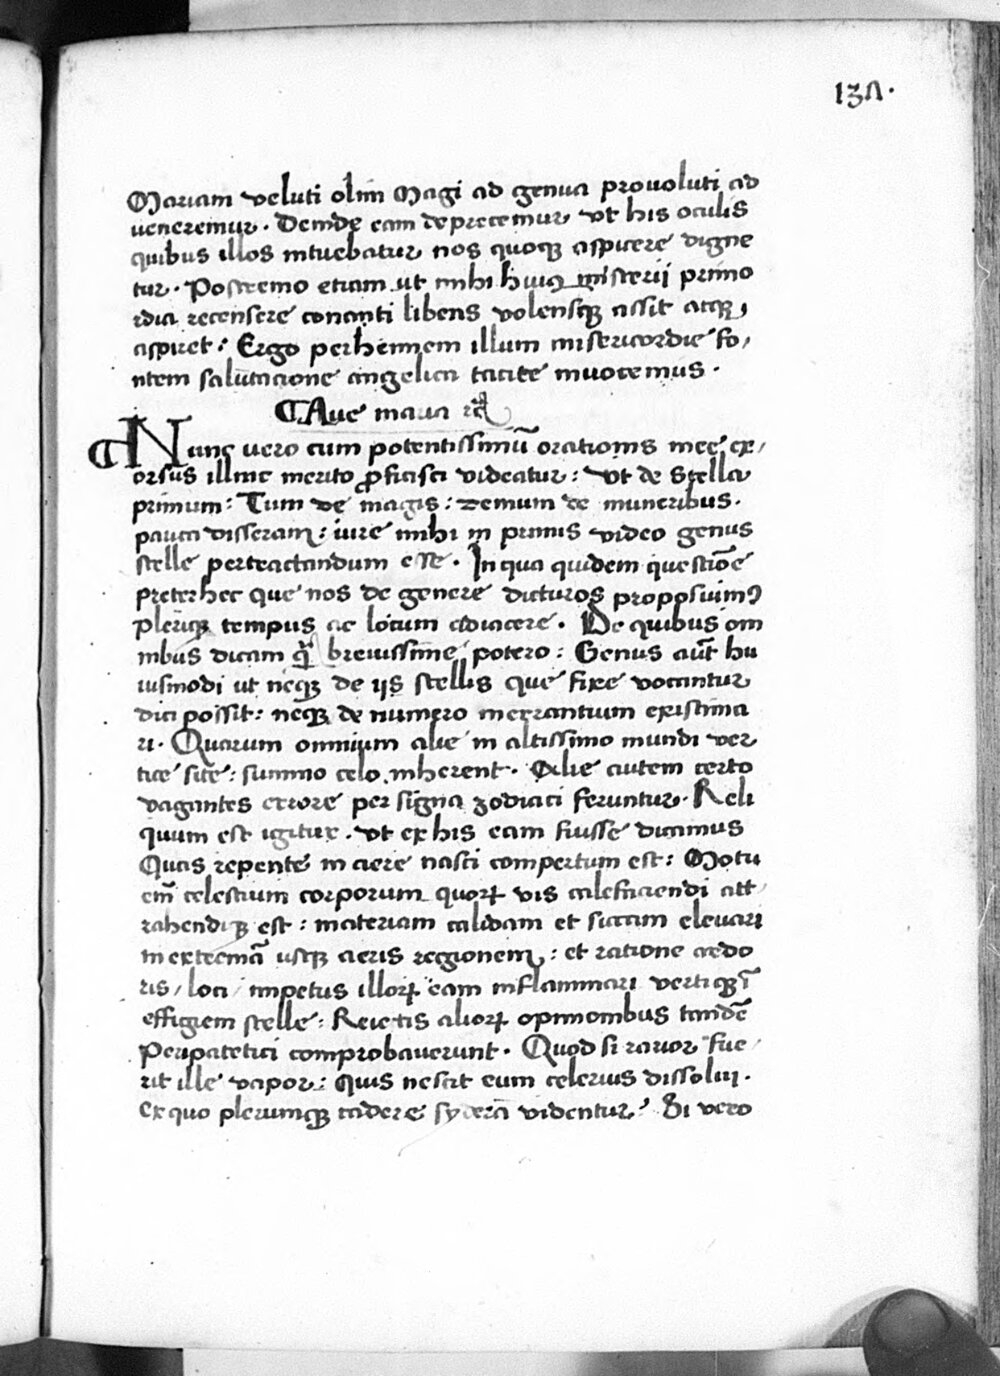 137.
Mariam veluti olim Magi ad genua provoluti ad
veneremur. Deinde eam deprecemur vt his oculis
quibus illos intuebatur nos quoqꝫ aspicere digne
tur. Postremo etiam ut mihi huiꝰ misterii primo
rdia recensere conanti libens volensqꝫ assit atqꝫ
aspiret: Ergo perhennem illum misericordie fo/
ntem salutacione angelica tacite invocemus.
¶Ave maria ⁊cͣ
¶Nunc vero cum potentissimū orationis mee ex/
orsus illinc merito ꝓficisci videatur: Vt de Stella
primum: Tum de magis: demum de muneribus.
pauca disseram: iure mihi in primis video genus
stelle pertractandum esse. In qua quidem questiōe
preter hec que nos de genere dicturos proposuimꝰ
pleriqꝫ tempus ac locum adiacere. De quibus om
nibus dicam ꝙ̄ brevissime potero: Genus aūt hu
iusmodi ut neqꝫ de ijs stellis que fixe vocantur
dici possit: neqꝫ de numero inerrantium existima
ri. Quarum omnium alie in altissimo mundi ver
tice site: summo celo inherent. Alie autem certo
vagantes errore per signa zodiaci feruntur. Reli
quum est igitur. vt ex his eam fuisse dicamus
Quas repente in aere nasci compertum est: Motu
em̄ celestium corporum quoꝝ vis calefaciendi att/
rahendiqꝫ est: materiam calidam et siccam elevari
in extremā usqꝫ aeris regionem: et ratione ardo
ris/ loci/ impetus illoꝝ eam inflammari vertiqꝫ ī
effigiem stelle: Reiectis alioꝝ opinionibus tandē
Peripatetici comprobaverunt. Quod si rarior fue/
rit ille vapor: Quis nescit eum celerius dissolui.
Ex quo plerumqꝫ cadere sydera videntur? Si vero